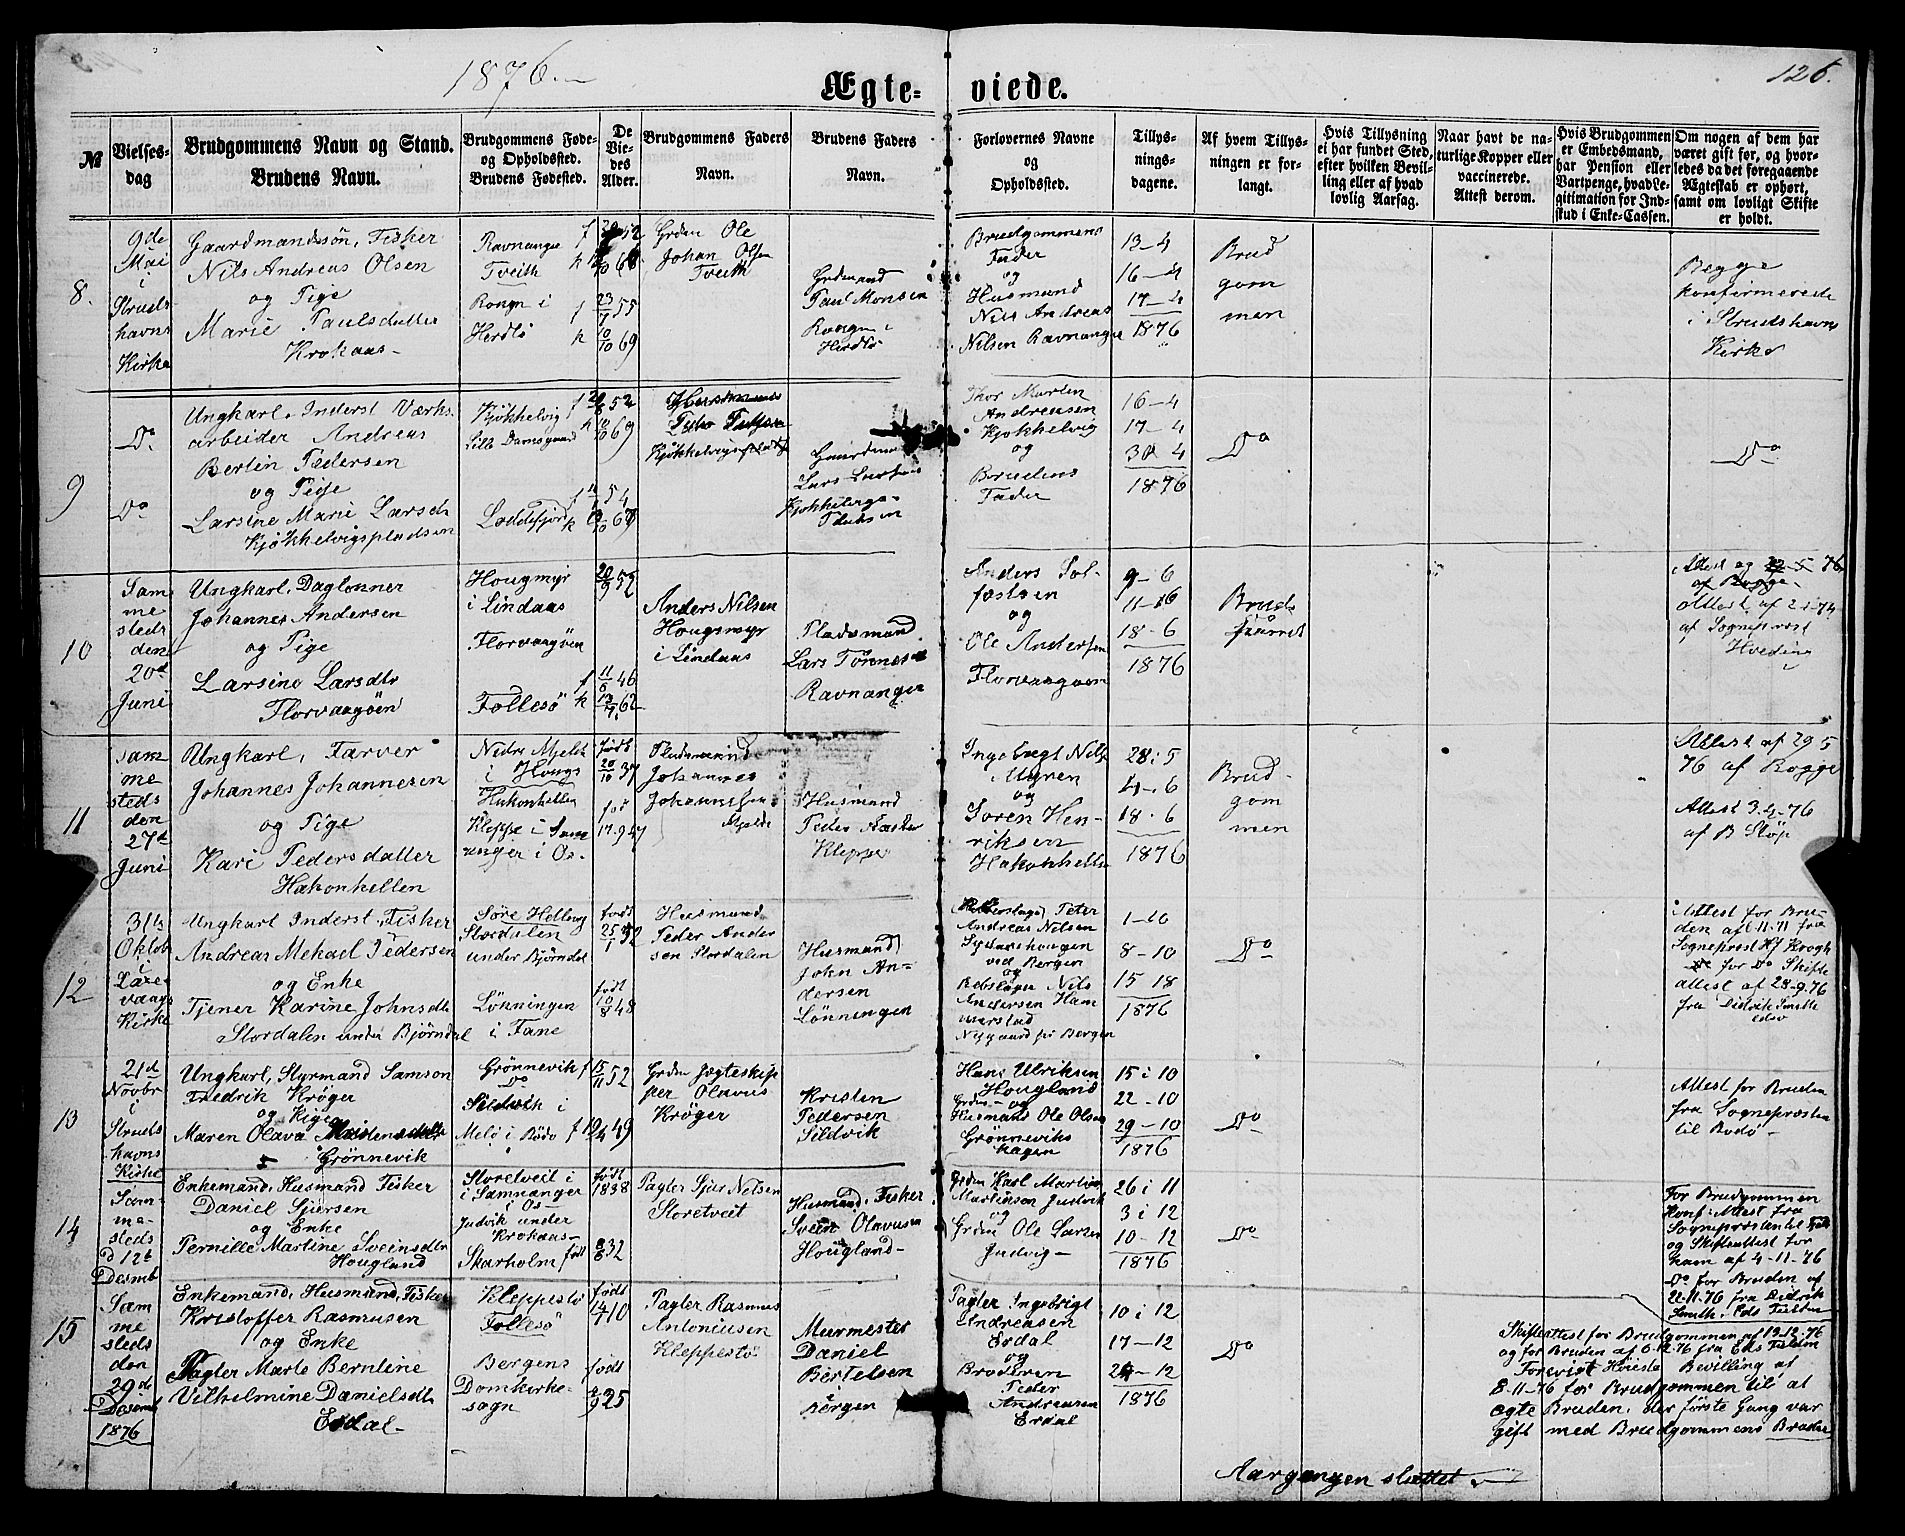 1876.
Ægte-
viede.
126.
№
Vielses-
dag
Brudgommens Navn og Stand.
Brudens Navn.
Brudgommens Føde-
og Opholdssted.
Brudens Fødested.
De
Vie-
des
Alder.
Brudgommens Faders
Navn.
Brudens Faders
Navn.
Forlovernes Navne
og
Opholdssted.
Tillys-
nings-
dagene.
Af hvem Tillys-
ningen er for-
langt.
Hvis Tillysning
ei har fundet Sted,
efter hvilken Bevil-
ling eller af hvad
lovlig Aarsag.
Naar havt de na-
turlige Kopper eller
vaccinerede.
Attest derom.
Hvis Brudgommen
er Embedsmand,
har Pension eller
Vartpenge, hvad Le-
gitimation for Ind-
skud i Enke-Cassen.
Om nogen af dem har
været gift før, og hvor-
ledes da det foregaaende
Ægteskab er ophørt,
samt om lovligt Skifte
er holdt.
8.
9de
Mai
i
Struds
havns
Kirke
Gaardmandssøn, Fisker
Nils Andreas Olsen
og Pige
Marie Paulsdatter
Krokaas-
Ravnange
Tveith
Rongn i
Herdlø
f 52
k
f 23/1 55
k 10/10 69
Grdm Ole
Johan Olsen
Tveith
Grdmand
Paul Monsen
Rongn i
Herdlø
Brudgommens
Fader
og
Husmand
Nils Andreas
Nilsen Ravnange
13-4
16-4
17-4
1876
Brud
gom
men
Begge
konfirmerede
i Strudshavns
Kirke
9
Do.
Do
Ungkarl. Inderst Værks.
arbeider Andreas
Bertin Pedersen
og Pige
Larsine Marie Larsdt
Kjøkkelvigspladsen
Kjøkkelvig
Lille Damsgaard
Loddefjord
f 52
k 10/10 69
f 54
k
Husmands
Kjøkkelvigspladss
Gaardm
Lars
Kjøkkelvigs-
Pladsen
Thor Martin
Andreasen
Kjøkkelvig
og
Brudens
Fader
16-4
17-4
30 4
1876
Do
Do
10
Sam
me
steds
den
20d
Juni
Ungkarl, Daglønner
Johannes Andersen
og Pige
Larsine Larsdtr
Florvaagøen
Hougmyr
i Lindaas
Florvaagøen
Follesø
20/9 52
f 11/6 46
k 62
Anders Nilsen
Hougsmyr
i Lindaas
Pladsmand
Lars Tønnes
Ravnanger
Anders Sol-
fæstsen
og
Ole Andersen
Florvaagøen
9-6
11-6
18-6
1876
Bruds
parret
Attest og 22-5-76
af Bøgge.
Attest af 2-1-74
af Sogneprest
Hvoding
11
sam
me
steds
den
27d
Juni
Ungkarl, Farver
Johannes Johannesen
og Pige
Kari Pedersdatter
Hakonhellen
Nedre Mjelde
i Hougs
Hakonhellen
Kleppe i Sam
nanger i Os.
født
20/10 37
fød
17.9 47
Pladsmand
Johannes
Johannesen
Mjelde
Husmand
Peder
Kleppe
Ingebregt Nils
i Ugren
og
Søren Hen-
riksen
Hakonhelle
28 i 5
4-6
18-6
1876
Brud-
gom
men
Attest af 29 5
76 af Bøgge
Attest 3.4-76
af B Støp
12
31ts
Oktob
i
Laxe
vaags
Kirke
Ungkarl Inderst, Fisker
Andreas Mekael Pedersen
og Enke
Tjener Karine Johnsdtr
Stordalen under Bjørndal
Søre Helleug
Stordalen
under Bjørndal
Lønningen
i Fane
født
25/1 52
født
10/8 48
Husmand
Peder Ander
sen Stordalen
Husmand
John An-
dersen
Lønningen
Peter
Andreas Nilsen
Sydneshougen
ved Bergen
og
Rebslager Nils
Andersen Ham
merstad
Nygaard pr Bergen
1-10
8-10
15 18
1876
Do
Attest for Bru-
den af 6-11-71 fra
Sogneprest Hf Krogh
Do for Do Skifte
attest af 28-9-76
fra Didrik Smith
edsv
13
21d
Novbr
i
Struds
havns
Kirke
Ungkarl, Styrmand Samson
Fredrik Krøger
og Pige
Maren Olava Kristensdatter
Grønnevik
Grønnevik
Do
Sildvik i
Melø i Bodø
f 15/11 52
f 49
Grdm Jægteskip
per Olavus
Krøger
Kristen
Pedersen
Sildvik
Hans Ulriksen
Hougland
Grdm- og
Husmand Ole Olsen
Grønneviks
hagen
15 i 10
22-10
29-10
1876
Do
Attest for Bruden
fra Sognepræsten
til Bodø-
14
Sam-
me-
steds
D 12t
Desmb
Enkemand, Husmand Fisker
Daniel Sjursen
og Enke
Pernille Martine Sveinsdtr
Hougland
Storetveit i
i Samnanger
i Os-
Judvik under
Krokaas-
Skarholm
født
1838
født 8/6 32
Pagter Sjur Nilsen
Storetveit
Husmand, Fisker
Svein Olavusen
Hougland-
Grdm Karl Martin
Martinsen Judvik
og
Grdm Ole Larsen
Judvig-
26 i 11
3 i 12
10-12
1876
Do
For Brudgommen
Konf: Attest fra
Sognepresten til
og Skifteattest for
ham af 4-11-76
Do for Bruden af
22-11.76 fra Didrik
Smith. Eds
15
Sam
me
steds
den
29d
Desembr
1876
Enkemand, Husmand, Fisker
Kristoffer Rasmusen
og Enke
Pagter Marte Berntine
Vilhelmine Danielsdtr
Erdal-
Kleppestø
Follesø
Bergens
Domkirke-
sogn
født
14/7 10
født
2/9 25
Pagter Rasmus
Antoniusen
Kleppestø
Murmester
Daniel
Bertelsen
i
Bergen
Pagter Ingebrigt
Andreasen
Erdal
og
Broderen
Peder
Andreasen
Erdal
10 i 12
17-12
24-12
1876
Do
Skifteattest for Brudgommen af 13-12-76
og for Bruden af 6-12-76 fra Eds
Forevist Høieste Bevilling af
8-11-76 for Brudgommen til at
egte Bruden, der første Gang var
gift med Brudgommens Broder
Aargangen sluttet